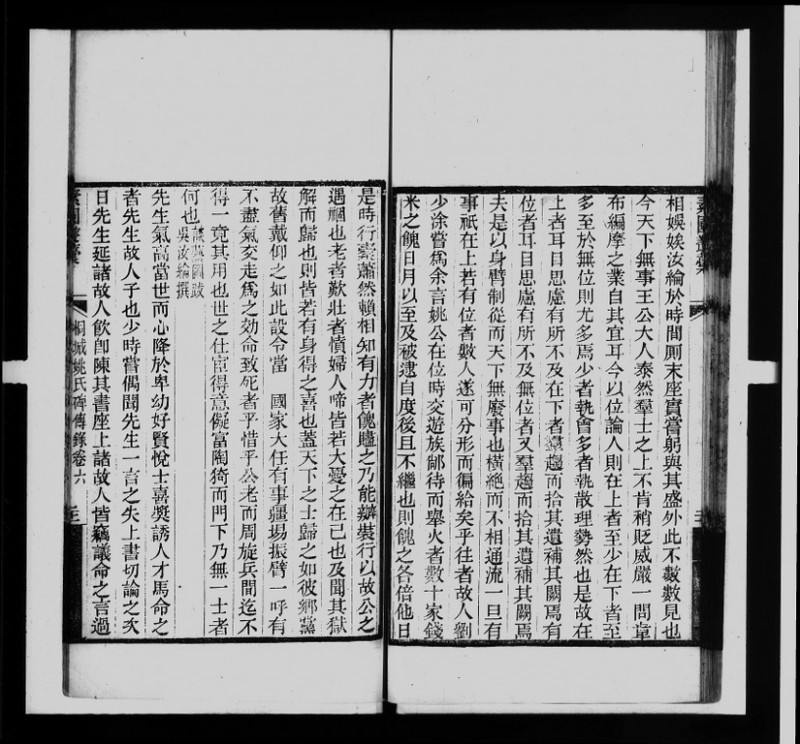 相娛娭汝綸於時間厠末座實嘗躬與其盛外此不數數見也
今天下無事王公大人泰然羣士之上不肯稍貶威嚴一問韋
布編摩之業自其宜耳今以位論人則在上者至少在下者至
多至於無位則尤多焉少者執會多者執散理勢然也是故在
上者耳目思慮有所不及在下者羣趨而拾其遺補其闕焉有
位者耳目思慮有所不及無位者又羣趨而拾其遺補其闕焉
夫是以身臂制從而天下無廢事也橫絶而不相通流一旦有
事祇在上若有位者數人遂可分形而徧給矣乎往者故人劉
少涂嘗爲余言姚公在位時交遊族鄰待而舉火者數十家錢
米之餽日月以至及被逮自度後且不繼也則餽之各倍他日
是時行橐蕭然賴相知有力者餽贐之乃能辦裝行以故公之
遇禍也老者歎壯者憤婦人啼皆若大憂之在己也及聞其獄
解而歸也則皆若有身得之喜也蓋天下之士歸之如彼鄉黨
故舊戴仰之如此設令當 國家大任有事疆埸振臂一呼有
不盡氣交走爲之効命致死者乎惜乎公老而周旋兵間迄不
得一竟其用也世之仕宦得意儗富陶猗而門下乃無一士者
何也
吳汝綸撰
先生氣高當世而心降於卑幼好賢悅士喜獎誘人才馬命之
者先生故人子也少時嘗偶聞先生一言之失上書切論之次
日先生延諸故人飲卽陳其書座上諸故人皆竊議命之言過
桐城姚氏碑傳錄卷六